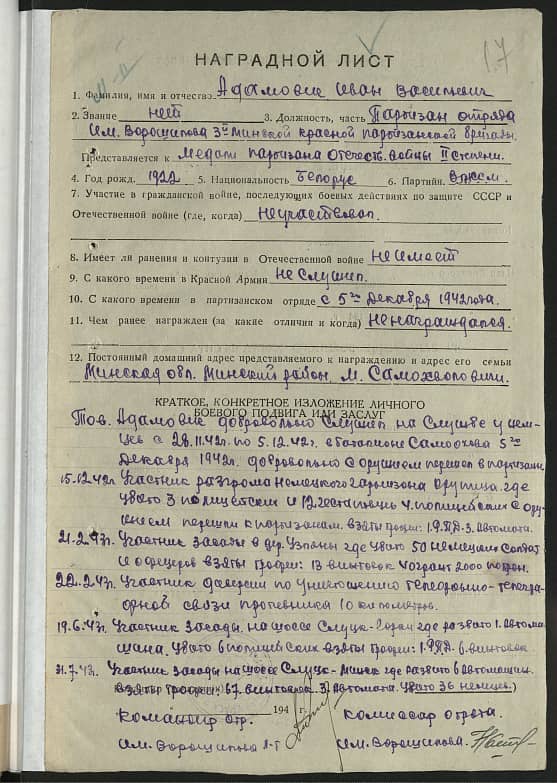 17
НАГРАДНОЙ ЛИСТ
1. Фамилия, имя и отчество Адамович Иван Васильевич
2. Звание нет 3. Должность, часть Партизан отряда
Им. Ворошилова 3й Минской красной партизанской бригады.
Представляется к Медали партизана Отечеств. войны II степени.
4. Год рожд. 1922 5. Национальность Белорус 6. Партийн. ВЛКСМ.
7. Участие в гражданской войне, последующих боевых действиях по защите СССР и
Отечественной войне (где, когда) Не участвовал.
8. Имеет ли ранения и контузии в Отечественной войне не имеет
9. С какого времени в Красной Армии Не служил.
10. С какого времени в партизанском отряде с 5го Декабря 1942 года.
11. Чем ранее награжден (за какие отличия и когда) Не награждался.
12. Постоянный домашний адрес представляемого к награждению и адрес его семьи
Минская обл. Минский район, м. Самохваловичи.
КРАТКОЕ, КОНКРЕТНОЕ ИЗЛОЖЕНИЕ ЛИЧНОГО
БОЕВОГО ПОДВИГА ИЛИ ЗАСЛУГ
Тов. Адамович добровольно служил на службе у нем-
цев с 28.11.42г. по 5.12.42г. в батальоне Самоохова 5го
Декабря 1942г. добровольно с оружием перешел в партизаны
15.12.42г. Участник разгрома немецкого гарнизона где
убито 3 полицейских и 12 4 полицейских с ору-
жием перешли к партизанам. взяты трофеи: 1.Р.П.Д-3. Автомата.
21.2.43г. Участник засады в дер. Уздяны где убито 50 немецких солдат
и офицеров взяты трофеи: 13 винтовок 2000 патрон.
22.2.43г. Участник диверсии по уничтожению телефонно-телегра-
фной связи противника 10 километров.
19.6.43г. Участник засады на шоссе Слуцк- где разбито 1. автома-
шина. убито полицейских взяты трофеи: 1.Р.П.Д винтовок.
31.7.43г. Участник засады на шоссе Слуцк-Минск где разбито 8 Автомашин.
взяты трофеи: 67. винтовок 3. Автомата. убито 36 немцев.)
194 г.
Командир отр. Комиссар отряда.
Им. Ворошилова Л-т Им. Ворошилова.